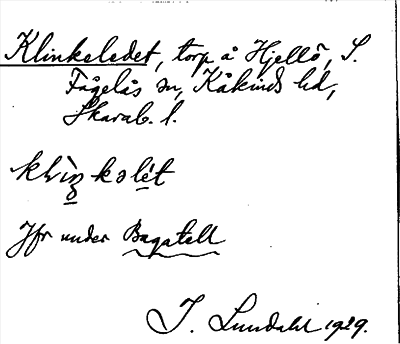 Klinkeledet, torp å Hjellö, S.
Fågelås sn, Kåkinds hd,
Skarab. l.
klìŋkəlét
Jfr under Bagatell
I. Lundahl 1929.